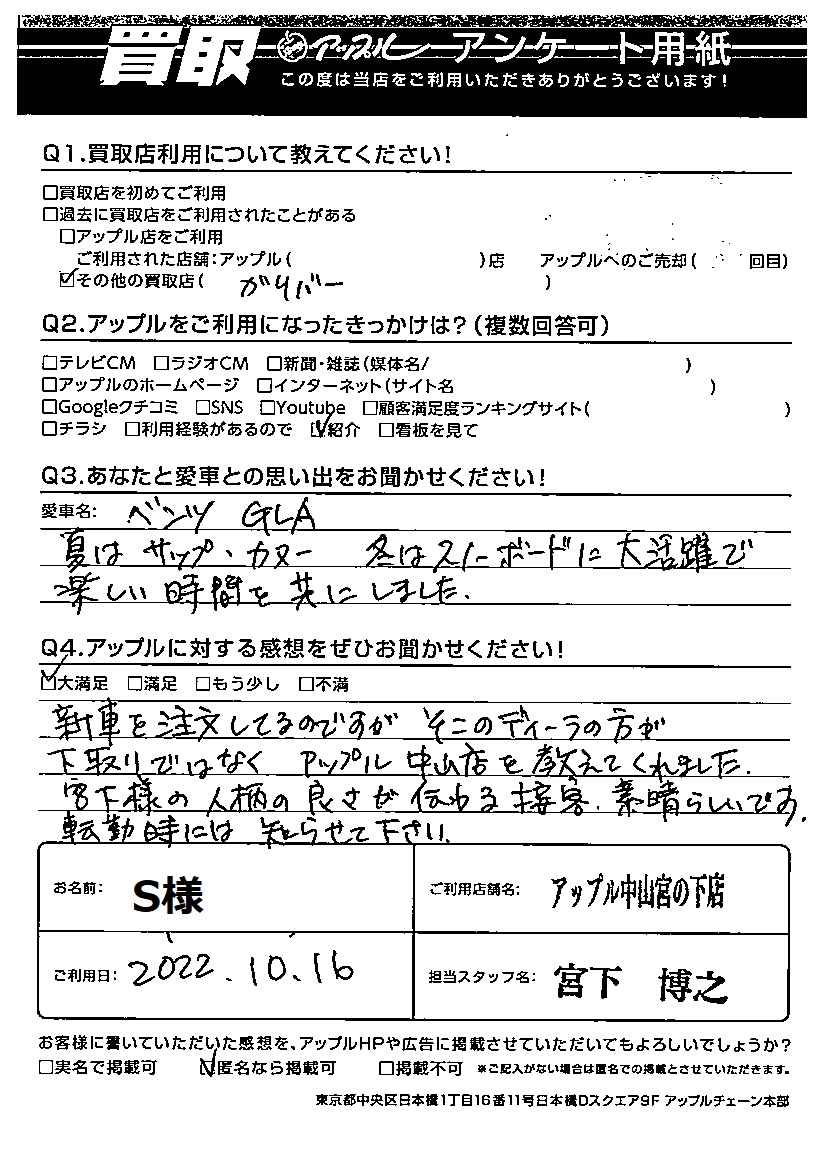 買取 アップル アンケート用紙
この度は当店をご利用いただきありがとうございます!
Q1.買取店利用について教えてください!
□買取店を初めてご利用
□過去に買取店をご利用されたことがある
□アップル店をご利用
ご利用された店舗:アップル( )店 アップルへのご売却( 回目)
☑その他の買取店( ガリバー )
Q2.アップルをご利用になったきっかけは?(複数回答可)
□テレビCM □ラジオCM □新聞・雑誌(媒体名/ )
□アップルのホームページ □インターネット(サイト名 )
□Googleクチコミ □SNS □Youtube □顧客満足度ランキングサイト( )
□チラシ □利用経験があるので ☑紹介 □看板を見て
Q3.あなたと愛車との思い出をお聞かせください!
愛車名: ベンツ GLA
夏は サップ・カヌー 冬はスノーボードに大活躍で
楽しい時間を共にしました.
Q4.アップルに対する感想をぜひお聞かせください!
☑大満足 □満足 □もう少し □不満
新車を注文してるのですが そこのディーラの方が
下取りではなく アップル 中山店を教えてくれました.
宮下様の人柄の良さが伝わる接客.素晴らしいです.
転勤時には 知らせて下さい.
お名前: S様 ご利用店舗名: アップル中山宮の下店
ご利用日: 2022.10.16 担当スタッフ名: 宮下 博之
お客様に書いていただいた感想を、アップルHPや広告に掲載させていただいてもよろしいでしょうか?
□実名で掲載可 ☑匿名なら掲載可 □掲載不可 ※ご記入がない場合は匿名での掲載とさせていただきます。
東京都中央区日本橋1丁目16番11号日本橋Dスクエア9F アップルチェーン本部